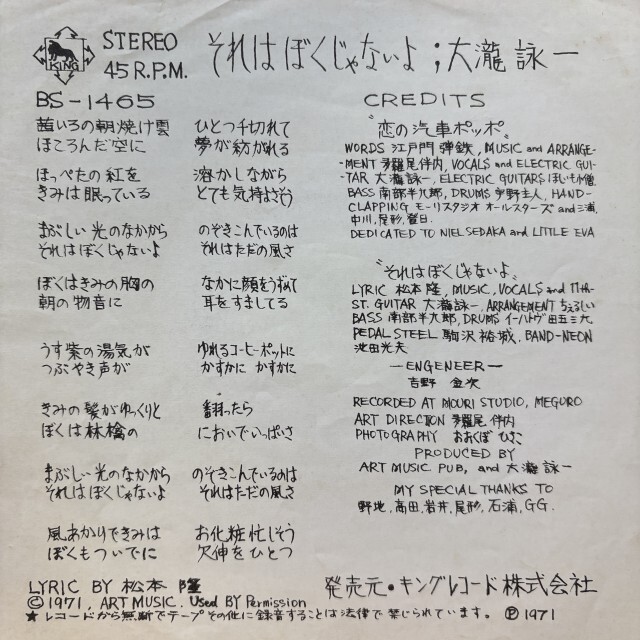 KING
STEREO
45 R.P.M.
それはぼくじゃないよ；大瀧詠一
BS-1465
茜いろの朝焼け雲 ひとつ千切れて
ほころんだ空に 夢が紡がれる
ほっぺたの紅を 溶かしながら
きみは眠っている とても気持よさそう
まぶしい光のなかから のぞきこんでいるのは
それはぼくじゃないよ それはただの風さ
ぼくはきみの胸の なかに顔をうずめて
朝の物音に 耳をすましてる
うす紫の湯気が ゆれるコーヒーポットに
つぶやき声が かすかに かすかに
きみの髪がゆっくりと 翻ったら
ぼくは林檎の においでいっぱいさ
まぶしい光のなかから のぞきこんでいるのは
それはぼくじゃないよ それはただの風さ
風あかりできみは お化粧忙しそう
ぼくもついでに 欠伸をひとつ
LYRIC BY 松本 隆
©1971, ART MUSIC. Used BY Permission
★レコードから無断でテープその他に録音することは法律で禁じられています。 ℗1971
CREDITS
"恋の汽車ポッポ"
WORDS 江戸門弾鉄, MUSIC and ARRANGE-
MENT 多羅尾伴内, VOCALS and ELECTRIC GUI-
TAR 大瀧詠一, ELECTRIC GUITARS ほしいも小僧
BASS 南部半九郎, DRUMS 宇野主人, HAND-
CLAPPING モーリスタジオ オールスターズ and 三浦,
中川, 尾砂, 鷲目.
DEDICATED TO NIEL SEDAKA and LITTLE EVA
"それはぼくじゃないよ"
LYRIC 松本隆, MUSIC, VOCALS and 11TH-
ST. GUITAR 大瀧詠一, ARRANGEMENT ちぇるしい
BASS 南部半九郎, DRUMS イーハトヴ田五三九
PEDAL STEEL 駒沢裕城, BAND-NEON
池田光夫
—ENGENEER—
吉野 金次
RECORDED AT MOURI STUDIO, MEGURO
ART DIRECTION 多羅尾 伴内
PHOTOGRAPHY おおくぼ ひさこ
PRODUCED BY
ART MUSIC PUB, and 大瀧詠一
MY SPECIAL THANKS TO
野地, 高田, 岩井, 尾砂, 石浦, G.G.
発売元・キングレコード株式会社